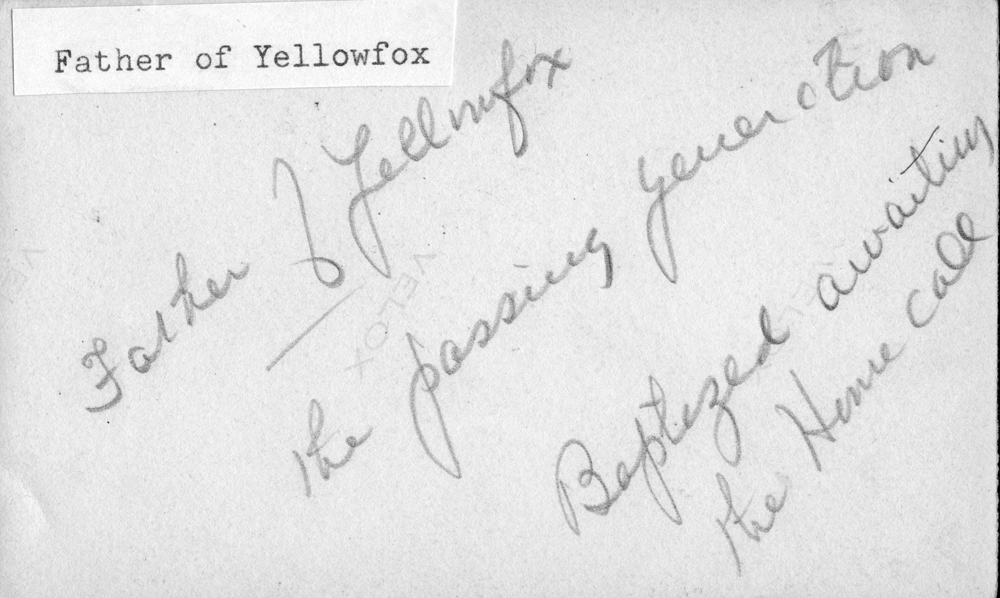 Father of Yellowfox
Father of Yellowfox
the passing generation
Baptized awaiting
the Home call
VELOX
VE